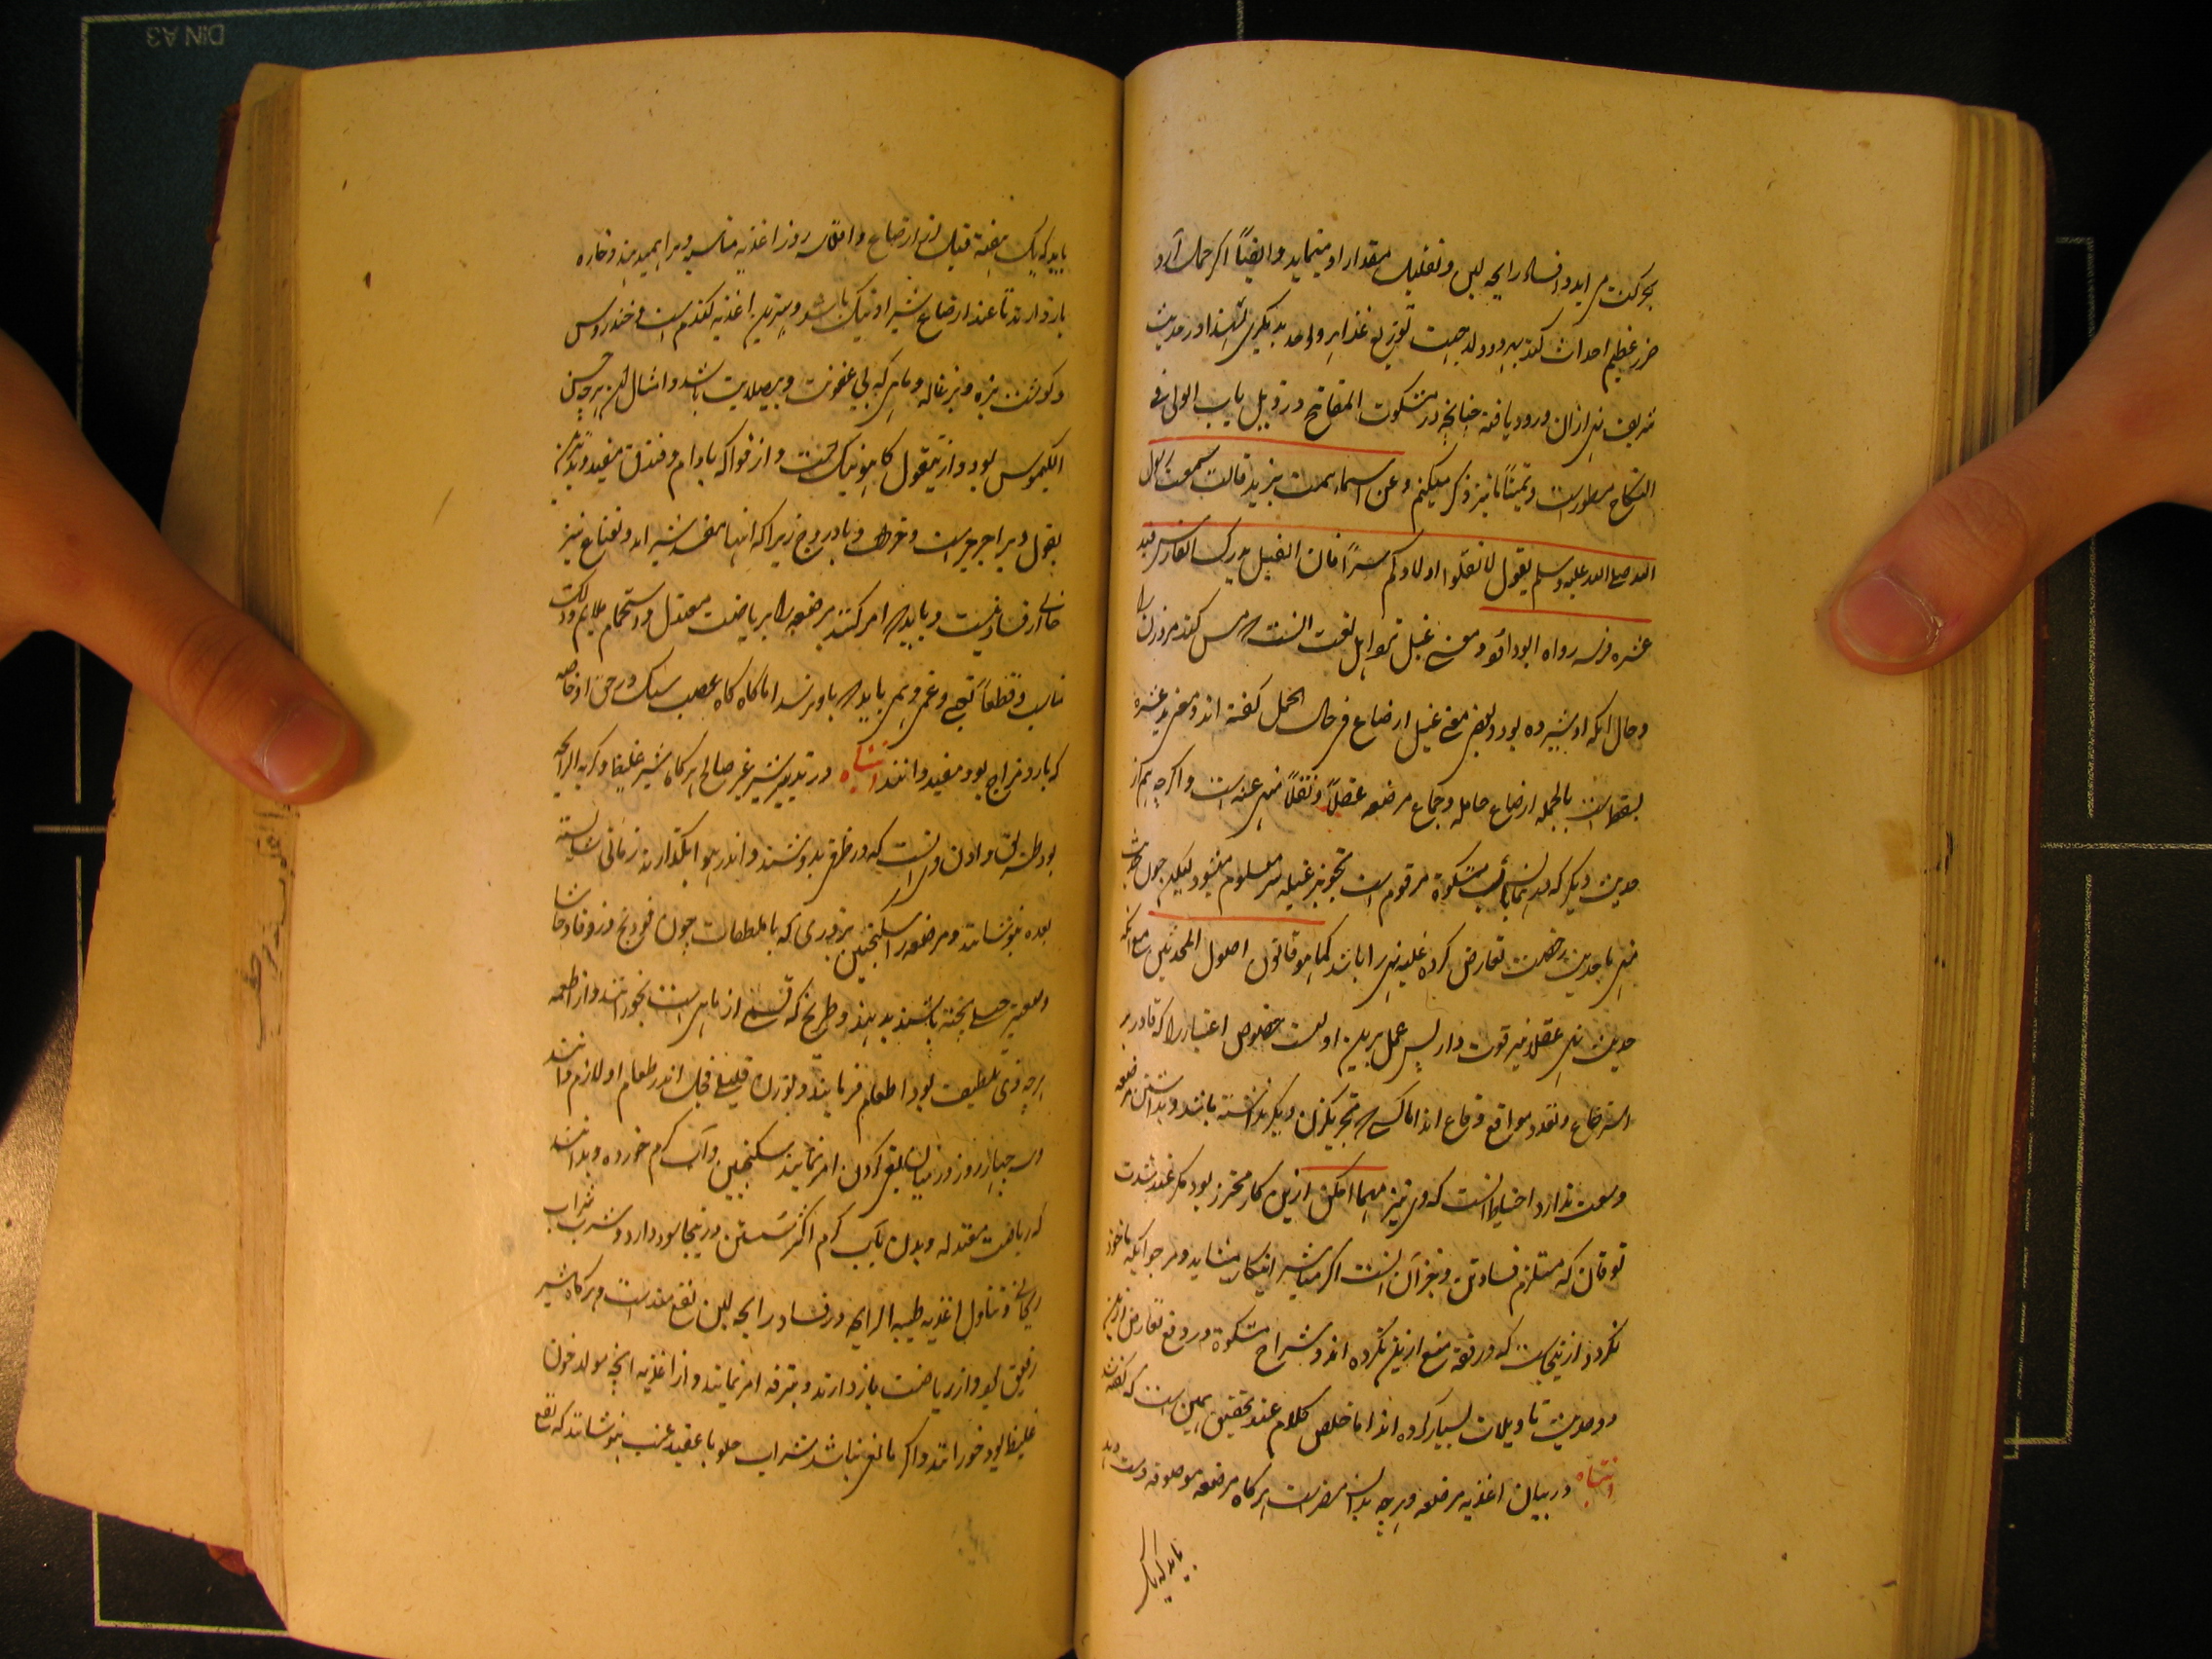 بحرکت می آید و افساد رایحه لبن و تقلیل مقدار او مینماید و ایضاً اگر حمل آرد
ضرر عظیم احداث کند بهر دو ولد جهت توزیع غذا و در حدیث
شریف نهی ازان ورود یافته چنانچه در مشکوت المفاتیح در ذیل باب الولی فی
النکاح مسطور است و تیمناً ما نیز ذکر میکنیم و عن اسماء بنت یزید قالت سمعت رسول
الله صلی الله علیه و سلم یقول لا تقتلوا اولادکم سراً فان الغیل یدرک الفارس فید
عثره فرسه رواه ابو داود و معنی غیل نزد اهل لغت آنست که مس کند مر زن را
و حال آنکه او شیرده بود و بعضی معنی غیل ارضاع فی حال الحمل گفته اند و معنی یدعثره
یسقط است بالجمله ارضاع حامله و جماع مرضعه عقلاً و نقلاً منهی عنه است و اگرچه هم از
حدیث دیگر که مشکوة مرقوم است تجویز غیله معلوم میشود لیکن چون حدیث
نهی با حدیث رخصت تعارض کرده غلبه نهی را باشد کما هو قانون اصول المحدثین مع آنکه
حدیث نهی عقلا نیز قوت دارد پس عمل برین اولیست خصوص اغنیا را که قادر بر
استرضاع و تعدد مواقع وقاع اند اما کسی که بجز یکزن دیگر نداشته باشد و بداشتن مرضعه
وسعت ندارد احتیاط آنست که وی نیز مهما امکن ازین کار محترز بود مگر عند شدت
توقان که مستلزم فساد تن و بغیر آن است اگر مباشر اینکار شاید و مرجو آنکه ماخوذ
نگردد ازینجاست که در فقه منع ازین نکرده اند و شراح مشکوة در دفع تعارض ازین
دو حدیث تاویلات بسیار کرده اند اما خلص کلام عند تحقیق همین است که گفته شد
انتباه در بیان اغذیه مرضعه و هرچه بدان مضر است هرگاه مرضعه موصوفه دست دهد
باید که یک
باید که یک هفته قبل از ارضاع و اقلش سه روز اغذیه مناسبه ویرا همی دهند و از
بازدارند تا عند ارضاع شیر او نیک باشد و بهترین اغذیه گندم است و خندروس
و گوشت بره و بزغاله و ماهی که بی عفونت و بی صلابت باشد و امثال این هرچه حسن
الکیموس بود و از بقول کاهو نیک است و از فواکه بادام و فندق مفید و بدترین
بقول ویرا جرجیر است و خردل و بادروج زیرا که اینها مفسد شیر اند و نعناع نیز
خالی از فساد نیست و باید که امر کنند مرضعه را بریاضت معتدل و استحمام ملایم و دلک
مناسب و قطعاً تعبی و غمی و همی باید که باو نرسد اما گاه گاه غضب سبک در حق او خاصه
که بارد مزاج بود مفید دانند انتباه در تدبیر شیر غیر صالح هرگاه شیر غلیظ و کریه الرایحه
بود طریق و اولی آنست که در ظرفی بدوشند و اندر هوا بگذارند زمانی شایسته
بعده بنوشانند و مرضعه را سکنجبین بزوری که با ملطفات چون فودنج و زوفا و حاشا
و صعتر جبلی پخته باشند بدهند و طریخ که قسمی از ماهی است بخورانند و از اطعمه
هرچه قوی تلطیف بود اطعام فرمایند و بودن قلیلی فجل اندر طعام او لازم دانند
و بعد چهار روز در میان بقی کردن امر نمایند سکنجبین و آب گرم خورده و بدانند
که ریاضت معتدله و بدن بآب گرم اکثر شستن درینجا سود دارد و شرب شراب
ریحانی و تناول اغذیه طیبه الرایحه در فساد رایحه لبن نفع مند است و هرگاه شیر
رقیق بود از ریاضت بازدارند و بترفه امر نمایند و از اغذیه آنچه مولد خون
غلیظ بود خورانند و اگر مانعی نباشد شراب حلو با عقید عنب بنوشانند که نافع